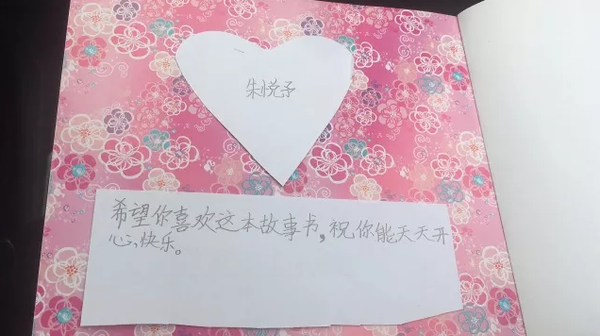 朱悦予
希望你喜欢这本故事书,祝你能天天开
心,快乐。